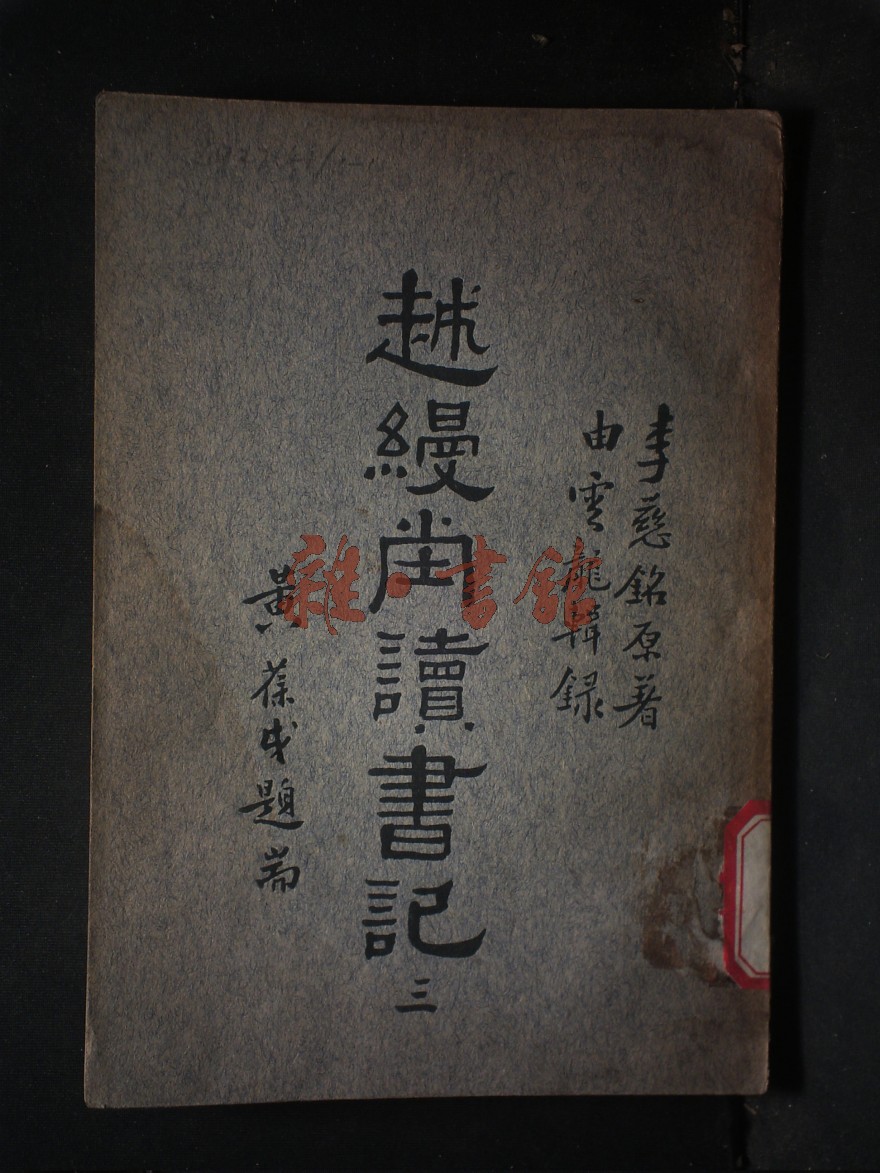 李慈銘原著
由雲龍輯録
越縵堂讀書記
三
黃葆戉題耑
雜·書館